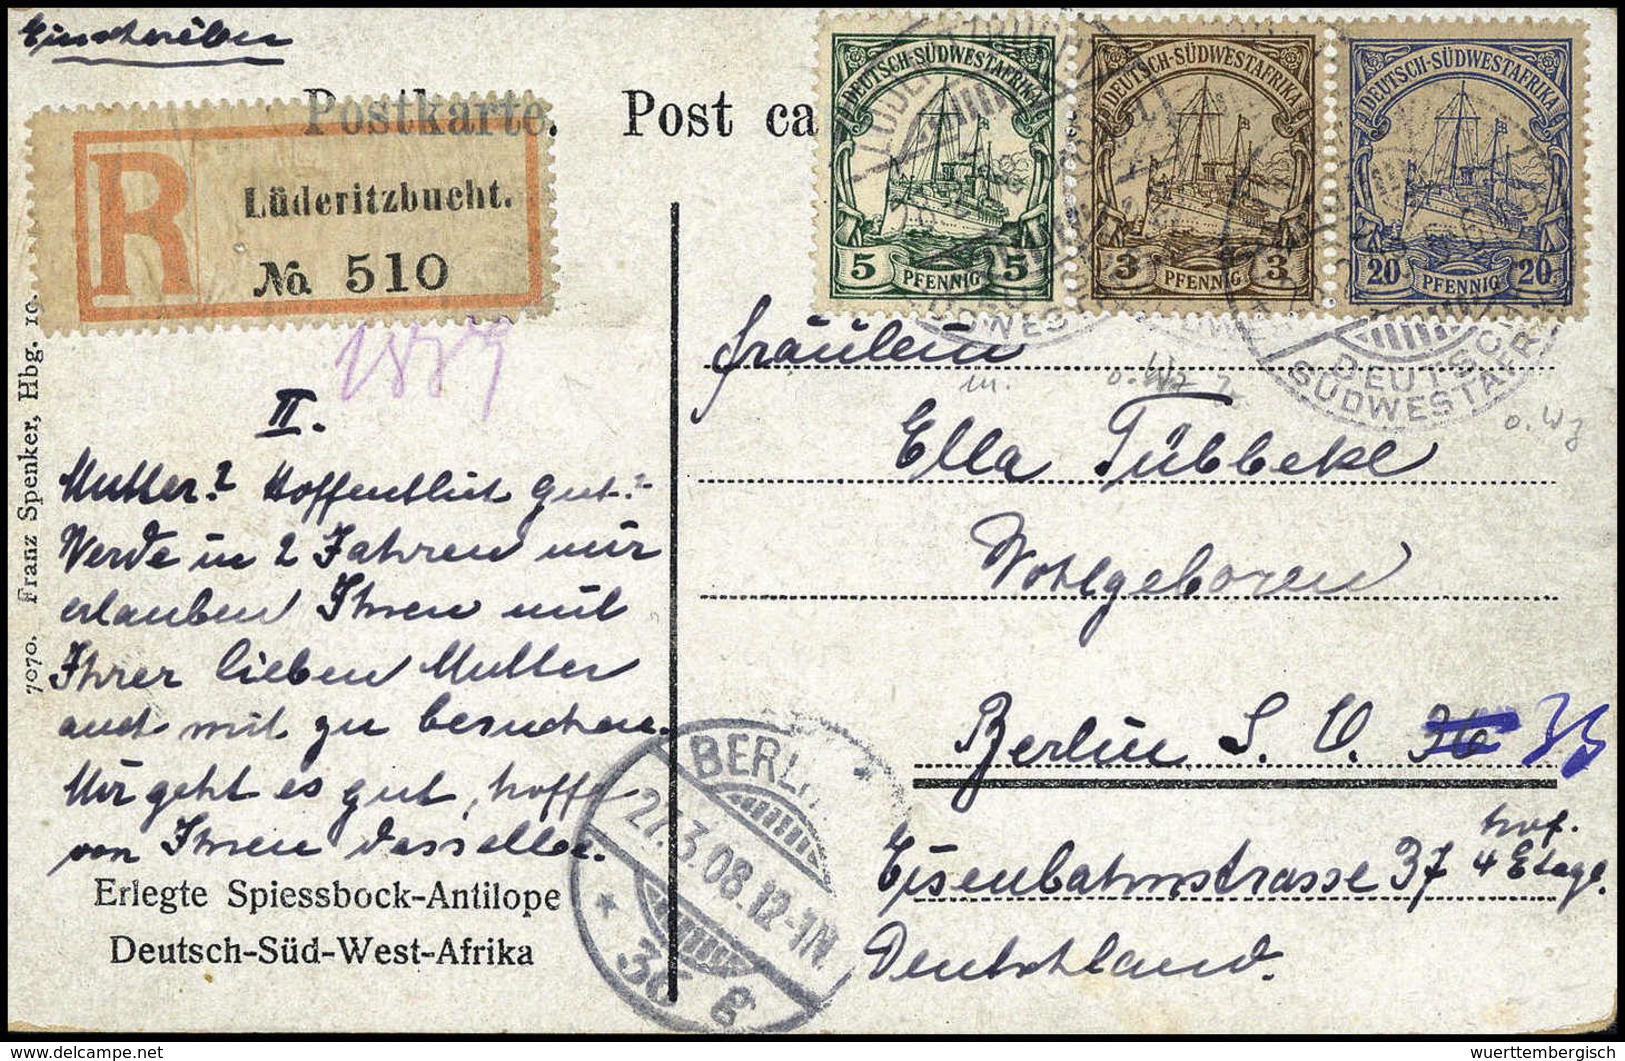 Einschreiben
Postkarte. Post ca
Lüderitzbucht.
No 510
R
DEUTSCH-SÜDWESTAFRIKA
5 PFENNIG 5
DEUTSCH-SÜDWESTAFRIKA
3 PFENNIG 3
DEUTSCH-SÜDWESTAFRIKA
20 PFENNIG 20
DEUTSCH
SÜDWESTAFR
o. Wz
o. Wz
II.
Mutter? Hoffentlich gut?
Werde in 2 Jahren mir
erlauben Ihnen mit
Ihrer lieben Mutter
auch mit zu besuchen.
Mir geht es gut, hoffe
von Ihnen dasselbe.
Erlegte Spiessbock-Antilope
Deutsch-Süd-West-Afrika
7070. Franz Spenker, Hbg. 10.
BERLIN
27.3.08.12-1N.
* 36 g *
Fräulein
Ella Tübbekl
Wohlgeboren
Berlin S. O. 36 33
Eisenbahnstrasse 37 hof. 4 Etage.
Deutschland.
wuerttembergisch